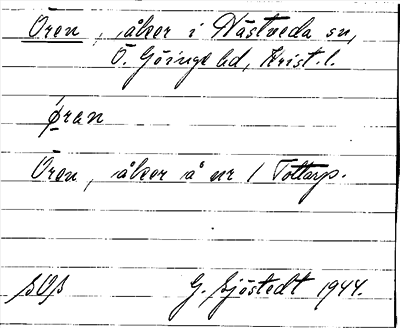 Ören, åker i Nästveda sn,
Ö. Göinge hd, Krist. l.
øran
Ören, åker å nr 1 Tottarp.
SOS G. Sjöstedt 1944.